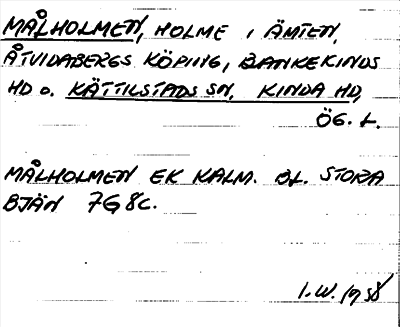 MÅLHOLMEN, HOLME I ÄMTEN,
ÅTVIDABERGS KÖPING, BANKEKINDS
HD o. KÄTTILSTADS SN, KINDA HD,
ÖG. L.
MÅLHOLMEN EK KALM. BL. STORA
BJÄN 7G8C.
I.W. 1958